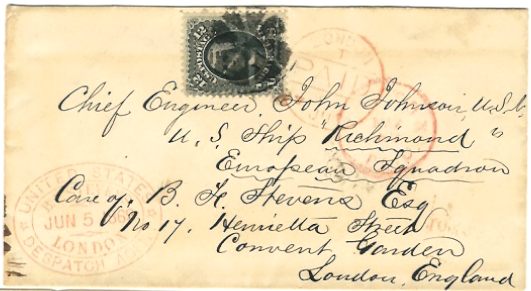 12 12
U.S. POSTAGE
LONDON
PAID
Chief Engineer, John Johnson, U.S.N.
U.S. Ship "Richmond"
European Squadron
Care of B. F. Stevens Esq
No 17. Henrietta Street
Convent Garden
London, England
UNITED STATES
JUN 5
LONDON
DESPATCH